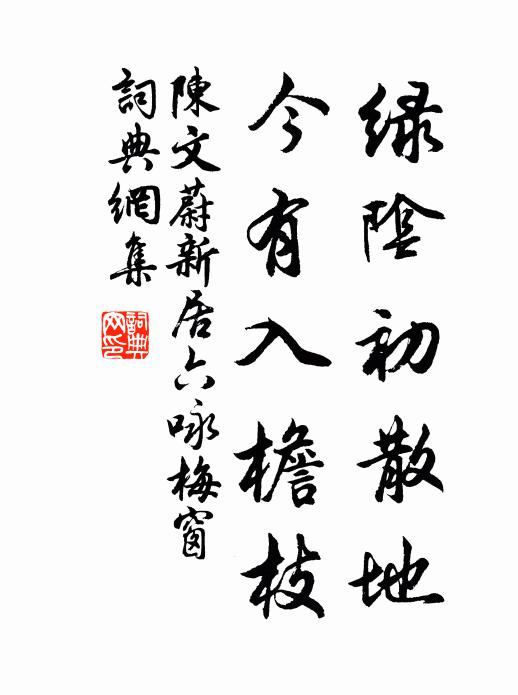 緑陰初散地
今有入檐枝
陳文蔚新居六咏梅窗
詞典網集
詞典网印